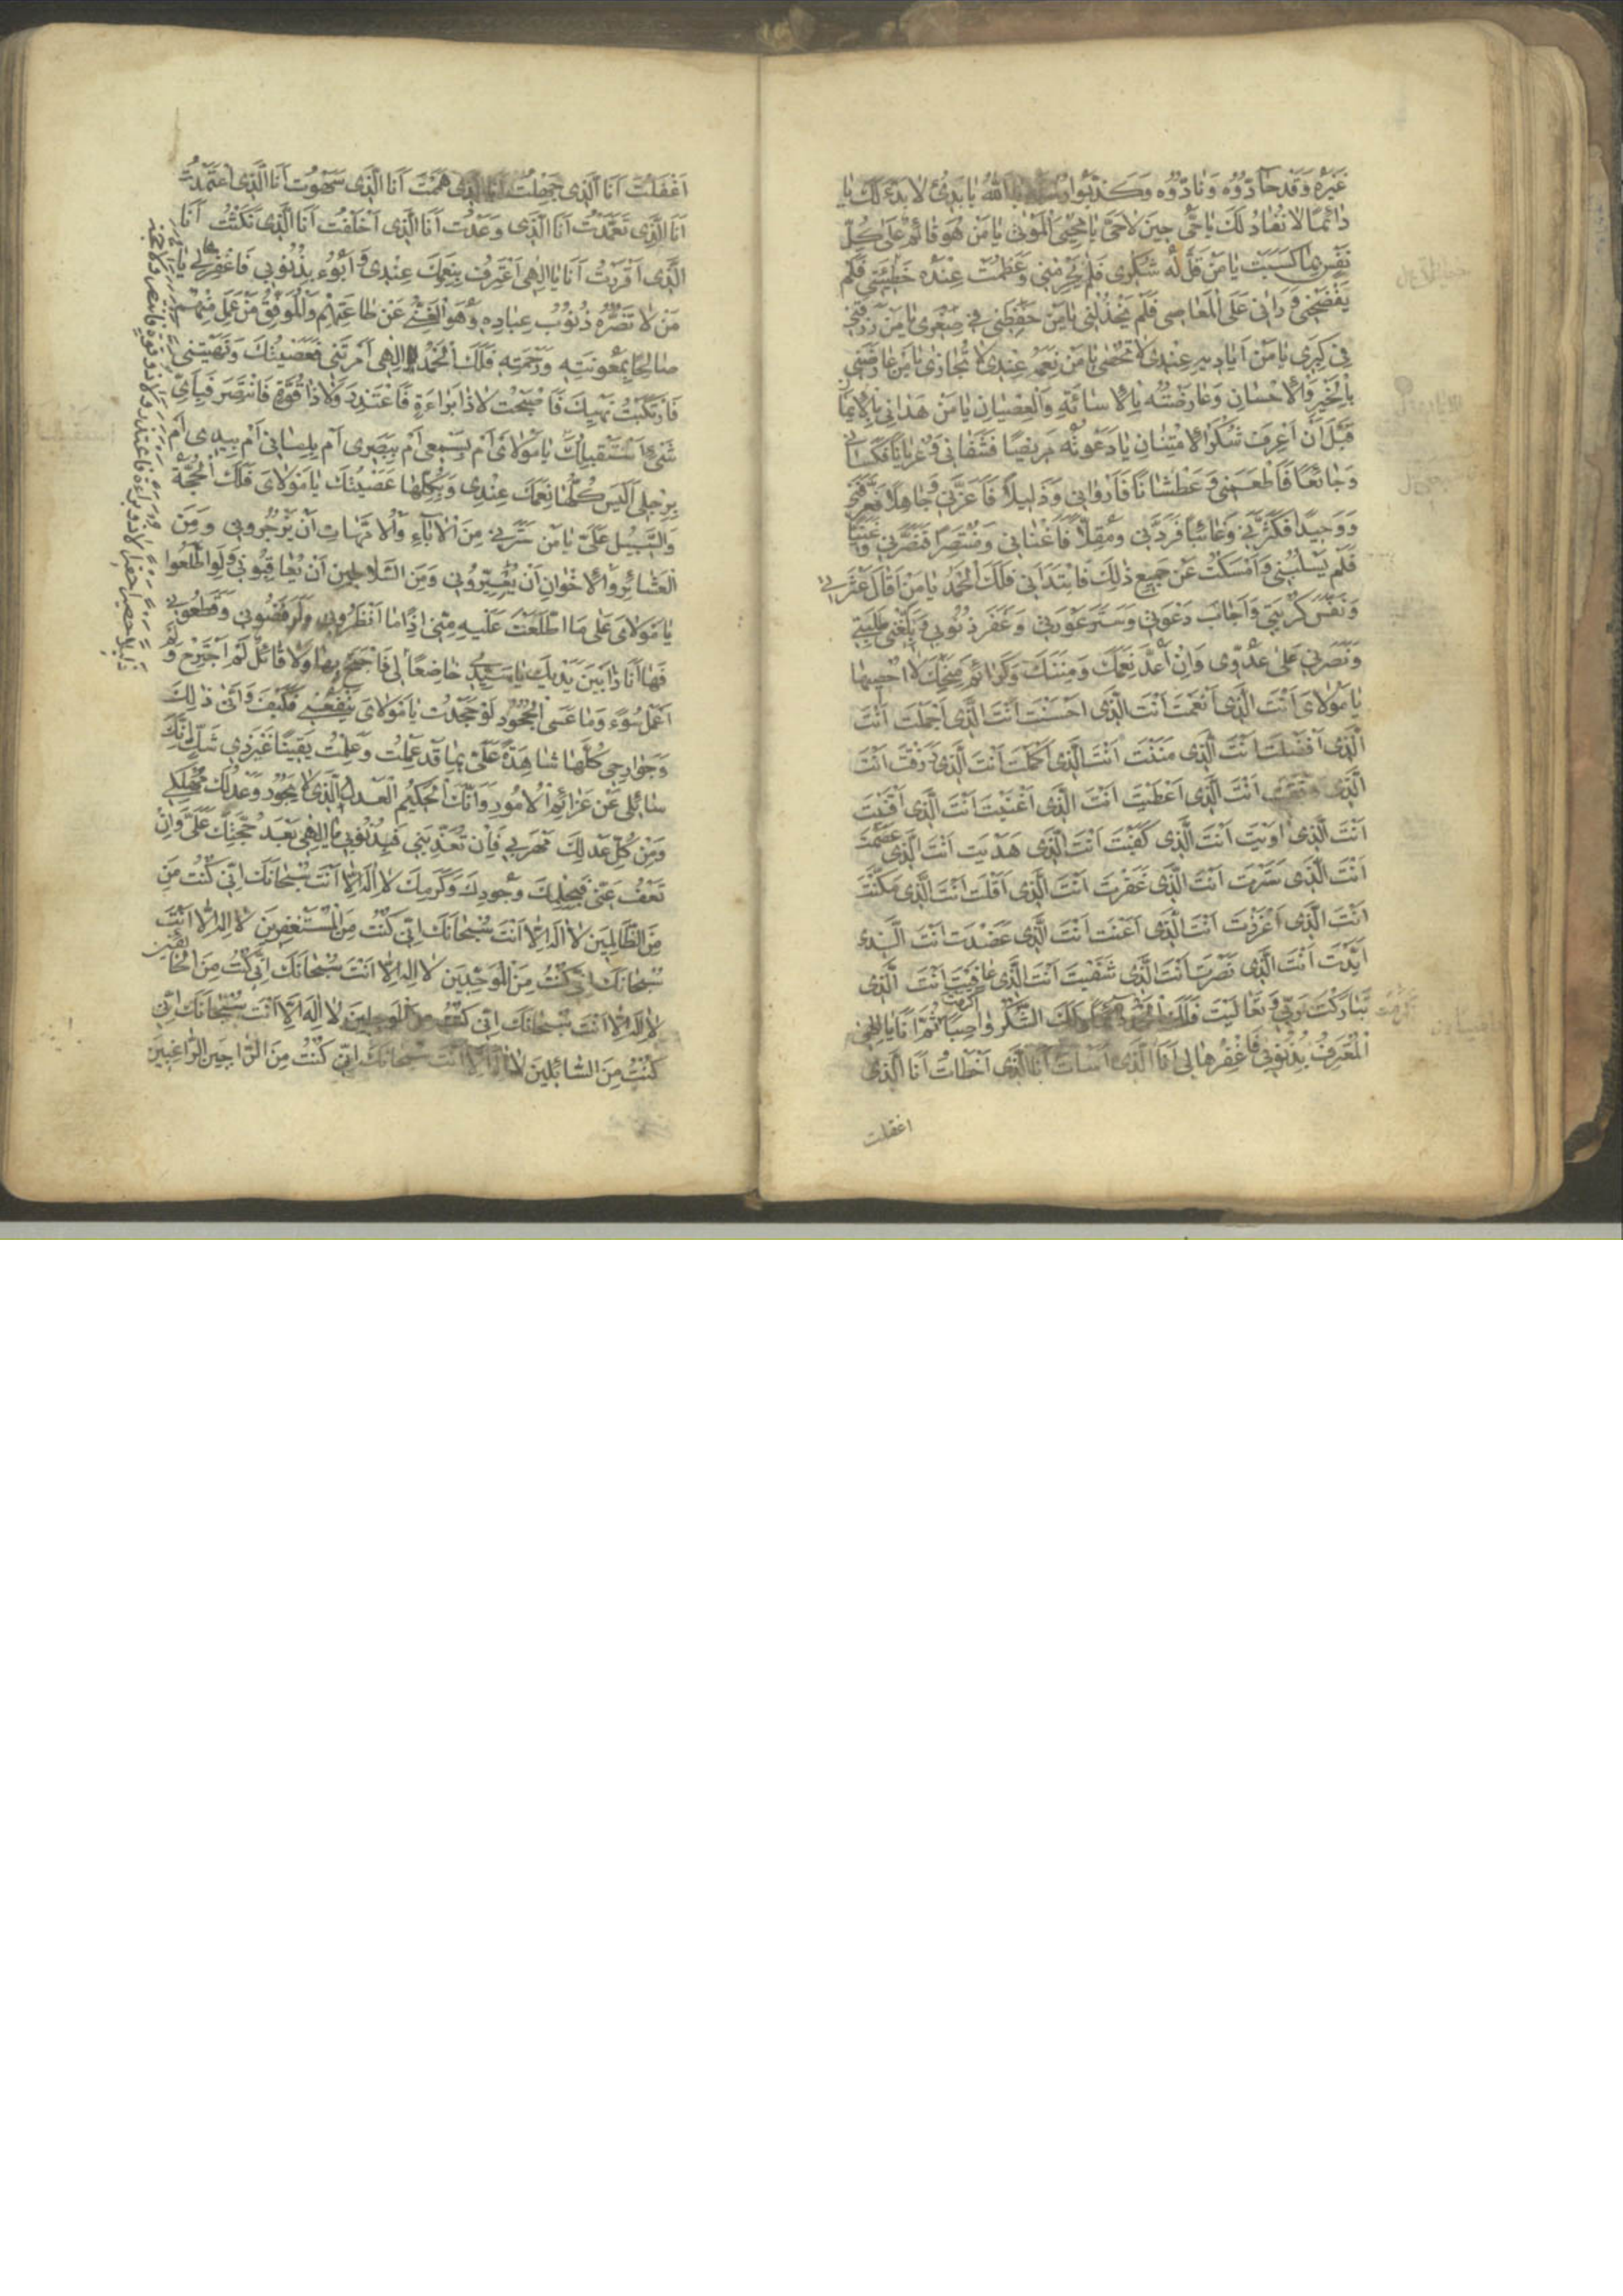 غَيْرَهُ وَقَدْ حَادُّوهُ وَنَادُّوهُ وَكَذَّبُوا يَا اَللّٰهُ يَا بَدِىءُ لَا بَدْءَ لَكَ يَا
دَائِمًا لَا نَفَادَ لَكَ يَا حَىُّ حِينَ لَا حَىَّ يَا مُحْيِىَ الْمَوْتٰى يَا مَنْ هُوَ قَائِمٌ عَلٰى كُلِّ
نَفْسٍ بِمَا كَسَبَتْ يَا مَنْ قَلَّ لَهُ شُكْرِى فَلَمْ يَحْرِمْنِى وَعَظُمَتْ عِنْدَهُ خَطِيئَتِى فَلَمْ
يَفْضَحْنِى وَرَاٰنِى عَلَى الْمَعَاصِى فَلَمْ يَخْذُلْنِى يَا مَنْ حَفِظَنِى فِى صِغَرِى يَا مَنْ رَزَقَنِى
فِى كِبَرِى يَا مَنْ اَيَادِيهِ عِنْدِى لَا تُحْصٰى يَا مَنْ نِعَمُهُ عِنْدِى لَا تُجَازٰى يَا مَنْ عَارَضَنِى
بِالْخَيْرِ وَالْاِحْسَانِ وَعَارَضْتُهُ بِالْاِسَائَةِ وَالْعِصْيَانِ يَا مَنْ هَدَانِى بِالْاِيمَانِ
قَبْلَ اَنْ اَعْرِفَ شُكْرَ الْاِمْتِنَانِ يَا دَعَوْتُهُ مَرِيضًا فَشَفَانِى وَعُرْيَانًا فَكَسَانِى
وَجَائِعًا فَاَطْعَمَنِى وَعَطْشَانًا فَاَرْوَانِى وَذَلِيلًا فَاَعَزَّنِى وَجَاهِلًا فَعَرَّفَنِى
وَوَحِيدًا فَكَثَّرَنِى وَغَائِبًا فَرَدَّنِى وَمُقِلًّا فَاَغْنَانِى وَمُنْتَصِرًا فَنَصَرَنِى وَغَنِيًّا
فَلَمْ يَسْلُبْنِى وَاَمْسَكْتُ عَنْ جَمِيعِ ذٰلِكَ فَابْتَدَاَنِى فَلَكَ الْحَمْدُ يَا مَنْ اَقَالَ عَثْرَتِى
وَنَفَّسَ كُرْبَتِى وَاَجَابَ دَعْوَتِى وَسَتَرَ عَوْرَتِى وَغَفَرَ ذُنُوبِى وَبَلَّغَنِى طَلِبَتِى
وَنَصَرَنِى عَلٰى عَدُوِّى وَاِنْ اَعُدَّ نِعَمَكَ وَمِنَنَكَ وَكَرَائِمَ مِنَحِكَ لَا اُحْصِيهَا
يَا مَوْلَاىَ اَنْتَ الَّذِى اَنْعَمْتَ اَنْتَ الَّذِى اَحْسَنْتَ اَنْتَ الَّذِى اَجْمَلْتَ اَنْتَ
الَّذِى اَفْضَلْتَ اَنْتَ الَّذِى مَنَنْتَ اَنْتَ الَّذِى اَكْمَلْتَ اَنْتَ الَّذِى رَزَقْتَ اَنْتَ
الَّذِى وَفَّقْتَ اَنْتَ الَّذِى اَعْطَيْتَ اَنْتَ الَّذِى اَغْنَيْتَ اَنْتَ الَّذِى اَقْنَيْتَ
اَنْتَ الَّذِى اٰوَيْتَ اَنْتَ الَّذِى كَفَيْتَ اَنْتَ الَّذِى هَدَيْتَ اَنْتَ الَّذِى عَصَمْتَ
اَنْتَ الَّذِى سَتَرْتَ اَنْتَ الَّذِى غَفَرْتَ اَنْتَ الَّذِى اَقَلْتَ اَنْتَ الَّذِى مَكَّنْتَ
اَنْتَ الَّذِى اَعْزَزْتَ اَنْتَ الَّذِى اَعَنْتَ اَنْتَ الَّذِى عَضَدْتَ اَنْتَ الَّذِى
اَيَّدْتَ اَنْتَ الَّذِى نَصَرْتَ اَنْتَ الَّذِى شَفَيْتَ اَنْتَ الَّذِى عَافَيْتَ اَنْتَ الَّذِى
تَبَارَكْتَ رَبِّى وَتَعَالَيْتَ فَلَكَ وَلَكَ الشُّكْرُ وَاصِبًا ثُمَّ اَنَا يَا اِلٰهِى
الْمُعْتَرِفُ بِذُنُوبِى فَاغْفِرْهَا لِى اَنَا الَّذِى اَسَأْتُ اَنَا الَّذِى اَخْطَأْتُ اَنَا الَّذِى
اغفلت
اَغْفَلْتُ اَنَا الَّذِى جَهِلْتُ اَنَا الَّذِى هَمَمْتُ اَنَا الَّذِى سَهَوْتُ اَنَا الَّذِى اعْتَمَدْتُ
اَنَا الَّذِى تَعَمَّدْتُ اَنَا الَّذِى وَعَدْتُ اَنَا الَّذِى اَخْلَفْتُ اَنَا الَّذِى نَكَثْتُ اَنَا
الَّذِى اَقْرَرْتُ اَنَا يَا اِلٰهِى اَعْتَرِفُ بِنِعَمِكَ عِنْدِى وَاَبُوءُ بِذُنُوبِى فَاغْفِرْ لِى يَا
مَنْ لَا تَضُرُّهُ ذُنُوبُ عِبَادِهِ وَهُوَ الْغَنِىُّ عَنْ طَاعَتِهِمْ وَالْمُوَفِّقُ مَنْ عَمِلَ مِنْهُمْ
صَالِحًا بِمَعُونَتِهِ وَرَحْمَتِهِ فَلَكَ الْحَمْدُ اِلٰهِى اَمَرْتَنِى فَعَصَيْتُكَ وَنَهَيْتَنِى
فَارْتَكَبْتُ نَهْيَكَ فَاَصْبَحْتُ لَا ذَا بَرَاءَةٍ فَاَعْتَذِرَ وَلَا ذَا قُوَّةٍ فَاَنْتَصِرَ فَبِاَىِّ
شَىْءٍ اَسْتَقْبِلُكَ يَا مَوْلَاىَ اَمْ بِسَمْعِى اَمْ بِبَصَرِى اَمْ بِلِسَانِى اَمْ بِيَدِى اَمْ
بِرِجْلِى اَلَيْسَ كُلُّهَا نِعَمَكَ عِنْدِى وَبِكُلِّهَا عَصَيْتُكَ يَا مَوْلَاىَ فَلَكَ الْحُجَّةُ
وَالسَّبِيلُ عَلَىَّ يَا مَنْ سَتَرَنِى مِنَ الْاٰبَاءِ وَالْاُمَّهَاتِ اَنْ يَزْجُرُونِى وَمِنَ
الْعَشَائِرِ وَالْاِخْوَانِ اَنْ يُعَيِّرُونِى وَمِنَ السَّلَاطِينِ اَنْ يُعَاقِبُونِى وَلَوِ اطَّلَعُوا
يَا مَوْلَاىَ عَلٰى مَا اطَّلَعْتَ عَلَيْهِ مِنِّى اِذًا مَا اَنْظَرُونِى وَلَرَفَضُونِى وَقَطَعُونِى
فَهَا اَنَا ذَا بَيْنَ يَدَيْكَ يَا سَيِّدِى خَاضِعًا وَلَا قَائِلٌ لَمْ اَجْتَرِحْ وَلَمْ
اَعْمَلْ سُوءً وَمَا عَسَى الْجُحُودُ لَوْ جَحَدْتُ يَا مَوْلَاىَ يَنْفَعُنِى فَكَيْفَ وَاَنّٰى ذٰلِكَ
وَجَوَارِحِى كُلُّهَا شَاهِدَةٌ عَلَىَّ بِمَا قَدْ عَمِلْتُ وَعَلِمْتُ يَقِينًا غَيْرَ ذِى شَكٍّ اَنَّكَ
سَائِلِى عَنْ عَزَائِمِ الْاُمُورِ وَاَنَّكَ الْحَكِيمُ الْعَدْلُ الَّذِى لَا يَجُورُ وَعَدْلُكَ مُهْلِكِى
وَمِنْ كُلِّ عَدْلِكَ مَهْرَبِى فَاِنْ تُعَذِّبْنِى فَبِذُنُوبِى يَا اِلٰهِى بَعْدَ حُجَّتِكَ عَلَىَّ وَاِنْ
تَعْفُ عَنِّى فَبِحِلْمِكَ وَجُودِكَ وَكَرَمِكَ لَا اِلٰهَ اِلَّا اَنْتَ سُبْحَانَكَ اِنِّى كُنْتُ مِنَ
مِنَ الظَّالِمِينَ لَا اِلٰهَ اِلَّا اَنْتَ سُبْحَانَكَ اِنِّى كُنْتُ مِنَ الْمُسْتَغْفِرِينَ لَا اِلٰهَ اِلَّا اَنْتَ
سُبْحَانَكَ اِنِّى كُنْتُ مِنَ الْمُوَحِّدِينَ لَا اِلٰهَ اِلَّا اَنْتَ سُبْحَانَكَ اِنِّى كُنْتُ مِنَ الْخَائِفِينَ
لَا اِلٰهَ اِلَّا اَنْتَ سُبْحَانَكَ اِنِّى كُنْتُ مِنَ الْوَجِلِينَ لَا اِلٰهَ اِلَّا اَنْتَ سُبْحَانَكَ اِنِّى
كُنْتُ مِنَ السَّائِلِينَ لَا اِلٰهَ اِلَّا اَنْتَ سُبْحَانَكَ اِنِّى كُنْتُ مِنَ الرَّاجِينَ الرَّاغِبِينَ
ذليلا حصيرا حقيرا لا ذو براءة فاعتذر ولا ذو قوة فانتصر ولا حجة